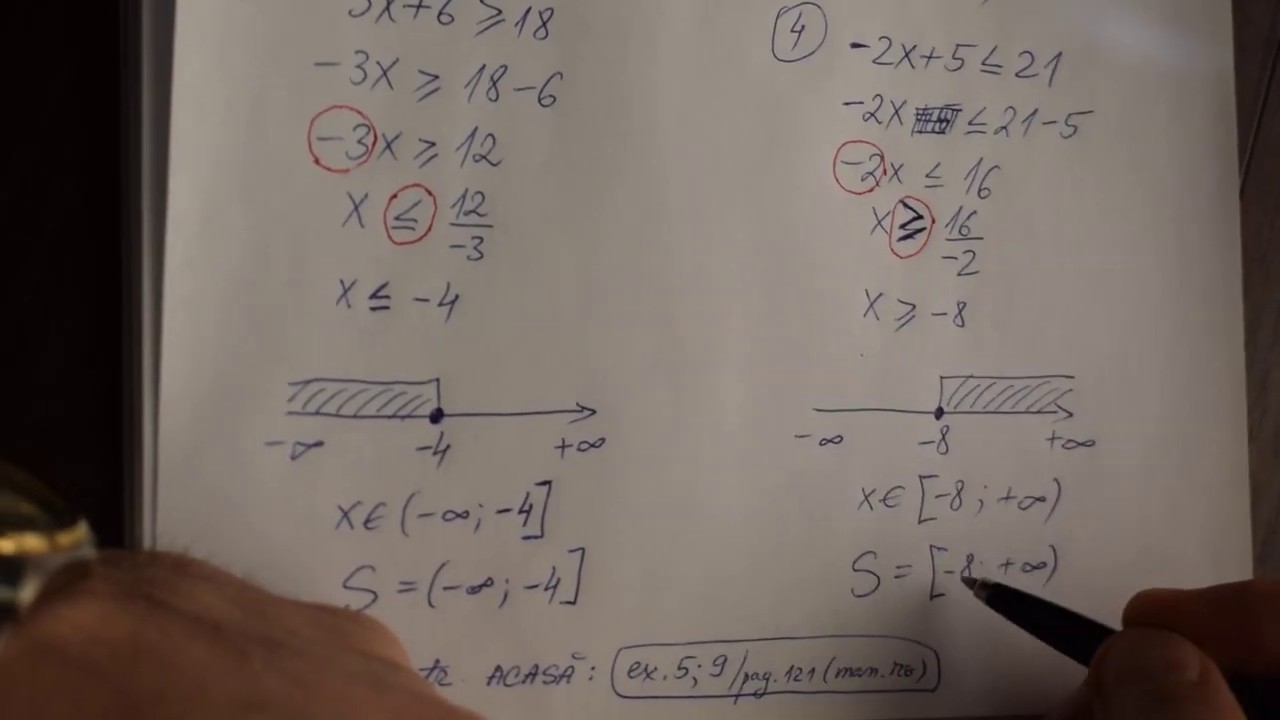 3x+6 ≥ 18
-3x ≥ 18-6
-3x ≥ 12
x ≤ 12/-3
x ≤ -4
-∞ -4 +∞
x∈(-∞; -4]
S=(-∞; -4]
4
-2x+5 ≤ 21
-2x ≤ 21-5
-2x ≤ 16
x ≥ 16/-2
x ≥ -8
-∞ -8 +∞
x∈[-8; +∞)
S=[-8; +∞)
ACASĂ: ex. 5; 9/pag. 121 (man.